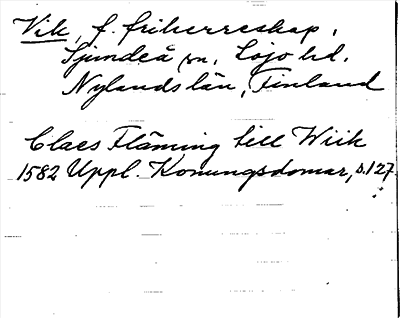 Vik, f. friherreskap,
Sjundeå sn, Lojo hd,
Nylands län, Finland
Claes Fläming till Wiik
1582 Uppl. Konungsdomar, s. 127.